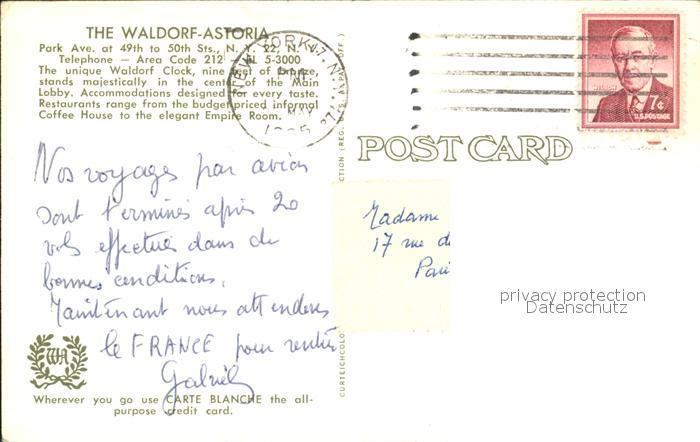 THE WALDORF-ASTORIA
Park Ave. at 49th to 50th Sts., N. Y. 22, N. Y.
Telephone — Area Code 212 EL 5-3000
The unique Waldorf Clock, nine feet of bronze,
stands majestically in the center of the Main
Lobby. Accommodations designed for every taste.
Restaurants range from the budget-priced informal
Coffee House to the elegant Empire Room.
NEW YORK, N.Y.
MAY
WILSON
7¢
U.S. POSTAGE
POST CARD
Nos voyages par avion
sont terminés après 20
vols effectués dans de
bonnes conditions.
Maintenant nous attendons
le FRANCE pour rentrer
Gabriel
Madame
17 rue d
Pari
privacy protection
Datenschutz
WA
Wherever you go use CARTE BLANCHE the all-
purpose credit card.
CURTEICHCOLO
CTION (REG. U.S. PAT. OFF.)